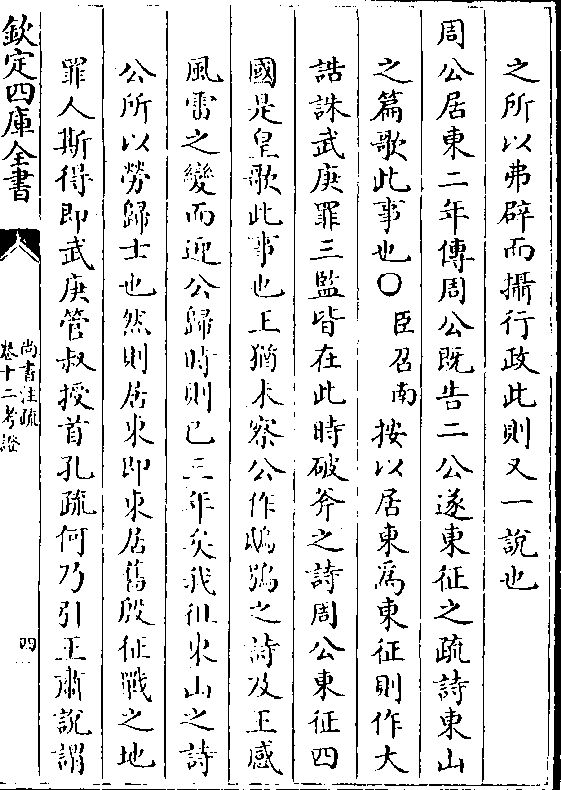 之所以弗辟而攝行政此則又一說也
周公居東二年傳周公既告二公遂東征之疏詩東山
之篇歌此事也○臣召南按以居東爲東征則作大
誥誅武庚罪三監皆在此時破斧之詩周公東征四
國是皇歌此事也王猶未察公作鴟鴞之詩及王感
風雷之變而迎公歸時則已三年矣我徂東山之詩
公所以勞歸士也然則居東即東居舊殷征戰之地
罪人斯得即武庚管叔授首孔疏何乃引王肅說謂
欽定四庫全書
尚書注疏
卷十二考證
四